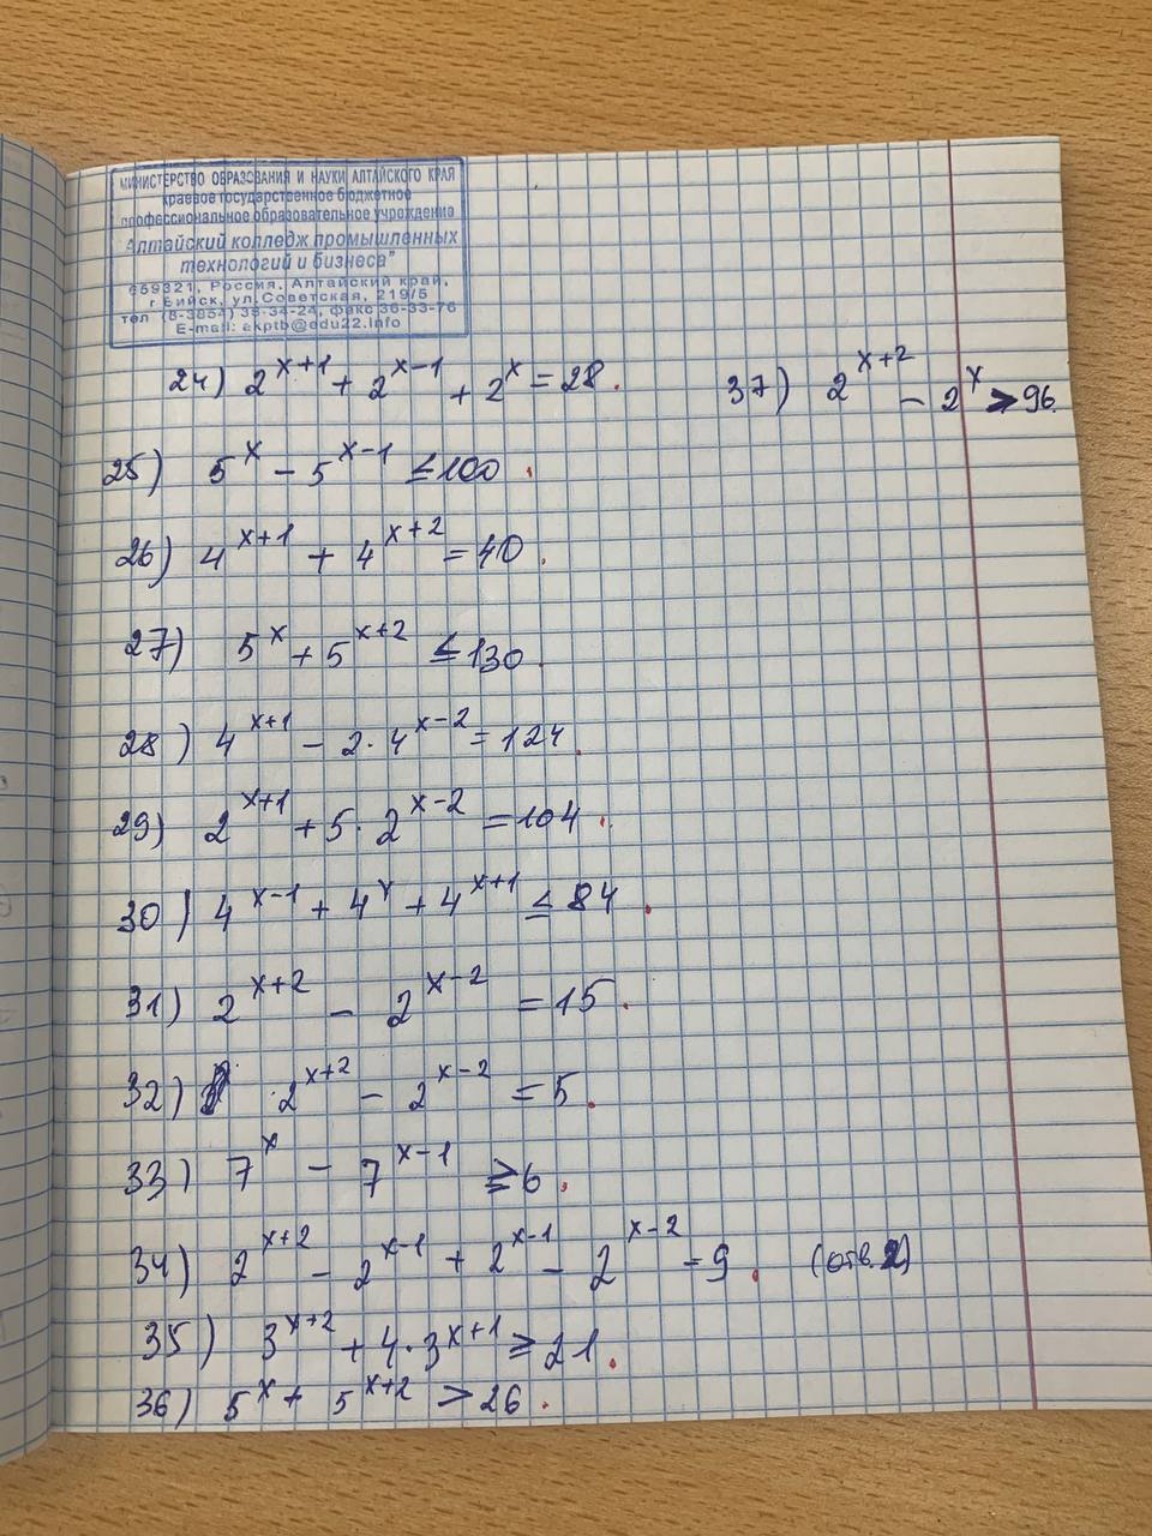 МИНИСТЕРСТВО ОБРАЗОВАНИЯ И НАУКИ АЛТАЙСКОГО КРАЯ
краевое государственное бюджетное
профессиональное образовательное учреждение
Алтайский колледж промышленных
технологий и бизнеса"
659321, Россия, Алтайский край,
г Бийск, ул.Советская, 219/5
тел (8-3854) 35-34-24, факс 36-33-76
E-mail: akptb@edu22.info
24) 2^{x+1} + 2^{x-1} + 2^x = 28. 37) 2^{x+2} - 2^x > 96.
25) 5^x - 5^{x-1} ≤ 100.
26) 4^{x+1} + 4^{x+2} = 40.
27) 5^x + 5^{x+2} ≤ 130.
28) 4^{x+1} - 2·4^{x-2} = 124.
29) 2^{x+1} + 5·2^{x-2} = 104.
30) 4^{x-1} + 4^x + 4^{x+1} ≤ 84.
31) 2^{x+2} - 2^{x-2} = 15.
32) 2^{x+2} - 2^{x-2} = 5.
33) 7^x - 7^{x-1} ≥ 6.
34) 2^{x+2} - 2^{x-1} + 2^{x-1} - 2^{x-2} - 9. (отв. 2)
35) 3^{x+2} + 4·3^{x+1} ≥ 21.
36) 5^x + 5^{x+2} > 26.